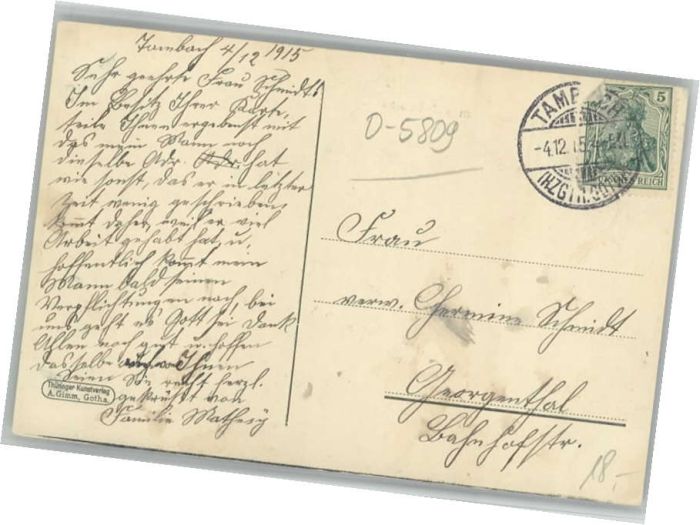 Tambach 4/12 1915
Sehr geehrte Frau Schmidt!
Im Besitz Ihrer Karte,
teile Ihnen ergebenst mit
das mein Mann noch
dieselbe Adr. hat
wie sonst, das er in letzter
Zeit wenig geschrieben,
kommt daher, weil er viel
Arbeit gehabt hat, u.
hoffentlich kommt mein
Mann bald seinen
Verpflichtungen nach, bei
uns geht es Gott sei Dank
Allen noch gut u. hoffen
dasselbe auch von Ihnen
Seien Sie recht herzl.
gegrüßt von
Familie Mathesy
Thüringer Kunstverlag
A. Gimm, Gotha.
D-5809
TAMB
-4.12.15
(HZGT.
5
REICH
Frau
verw. Hermine Schmidt
Georgenthal
Bahnhofstr.
18,-